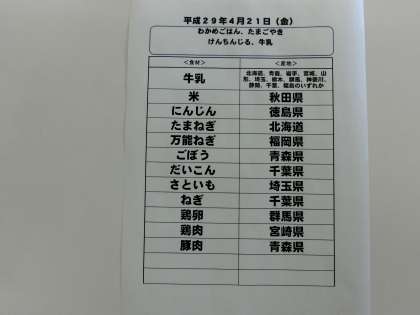 平成29年4月21日（金）
わかめごはん、たまごやき
けんちんじる、牛乳
＜食材＞ ＜産地＞
牛乳 北海道、青森、岩手、宮城、山
形、埼玉、栃木、群馬、神奈川、
静岡、千葉、福島のいずれか
米 秋田県
にんじん 徳島県
たまねぎ 北海道
万能ねぎ 福岡県
ごぼう 青森県
だいこん 千葉県
さといも 埼玉県
ねぎ 千葉県
鶏卵 群馬県
鶏肉 宮崎県
豚肉 青森県